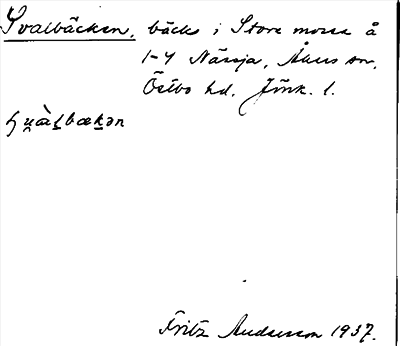 Svalbäcken, bäck i Stora mossa å
1-4 Nässja, Åkers sn,
Östbo hd. Jönk. l.
Fritz Andersson 1937.